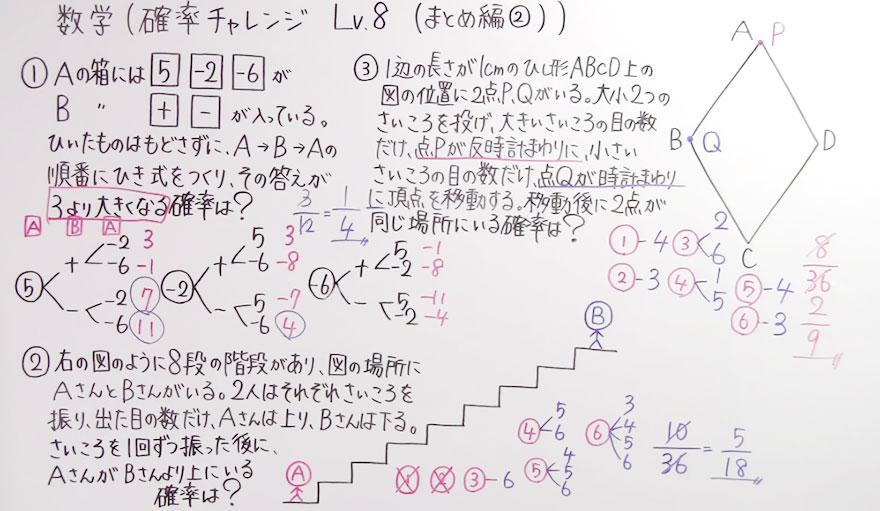 数学(確率チャレンジ Lv.8 (まとめ編②))
① Aの箱には 5 -2 -6 が
B 〃 + - が入っている。
ひいたものはもどさずに、A→B→Aの
順番にひき式をつくり、その答えが
3より大きくなる確率は?
3/12 = 1/4
A B A
5 + -2 3
-6 -1
- -2 7
-6 11
-2 + 5 3
-6 -8
- 5 -7
-6 4
-6 + 5 -1
-2 -8
- 5 -11
-2 -4
② 右の図のように8段の階段があり、図の場所に
AさんとBさんがいる。2人はそれぞれさいころを
振り、出た目の数だけ、Aさんは上り、Bさんは下る。
さいころを1回ずつ振った後に、
AさんがBさんより上にいる
確率は?
A
B
① ② ③-6
④ 5
6
⑤ 4
5
6
⑥ 3
4
5
6
10/36 = 5/18
③ 1辺の長さが1cmのひし形ABCD上の
図の位置に2点P,Qがいる。大小2つの
さいころを投げ、大きいさいころの目の数
だけ、点Pが反時計まわりに、小さい
さいころの目の数だけ、点Qが時計まわり
に頂点を移動する。移動後に2点が
同じ場所にいる確率は?
A P
B Q
D
C
①-4 ③ 2
6
②-3 ④ 1
5
⑤-4
⑥-3
8/36
2/9